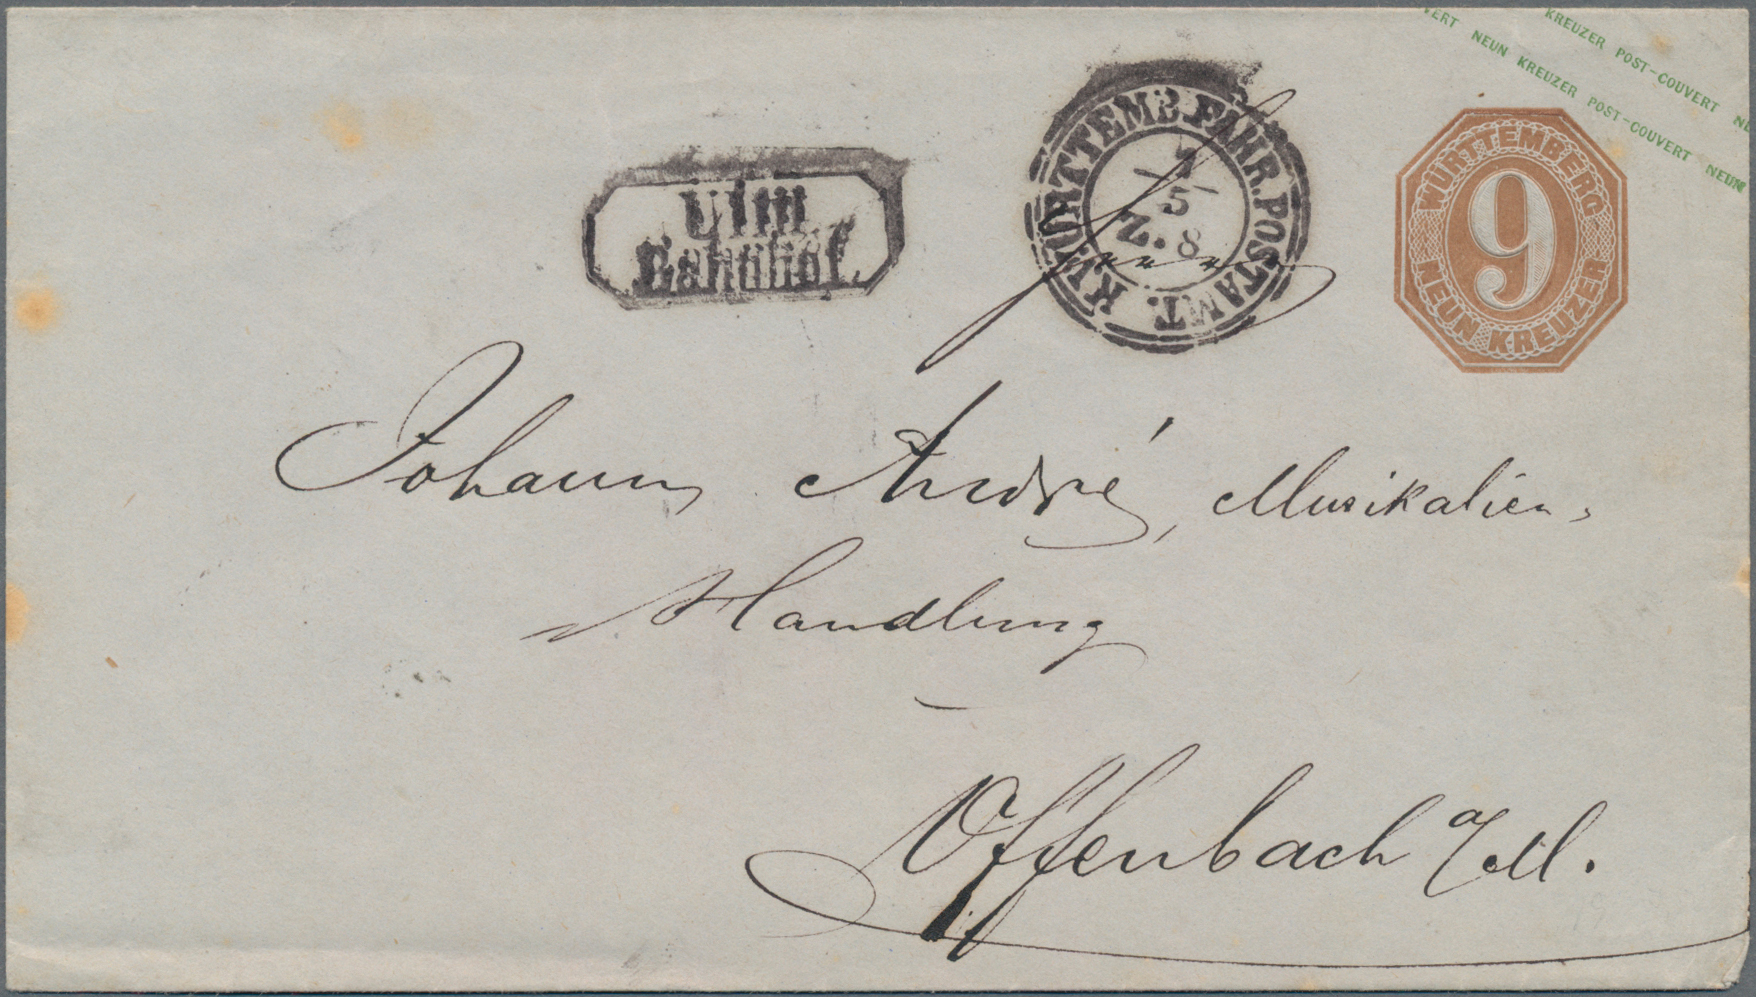 KREUZER POST-COUVERT NE
VERT NEUN KREUZER POST-COUVERT NEUN
Ulm
Bahnhof.
K.WÜRTTEMB.FAHR.POSTAMT.
5
Z. 8
WÜRTTEMBERG
9
NEUN KREUZER
Johann André, Musikalien-
Handlung
Offenbach a/M.